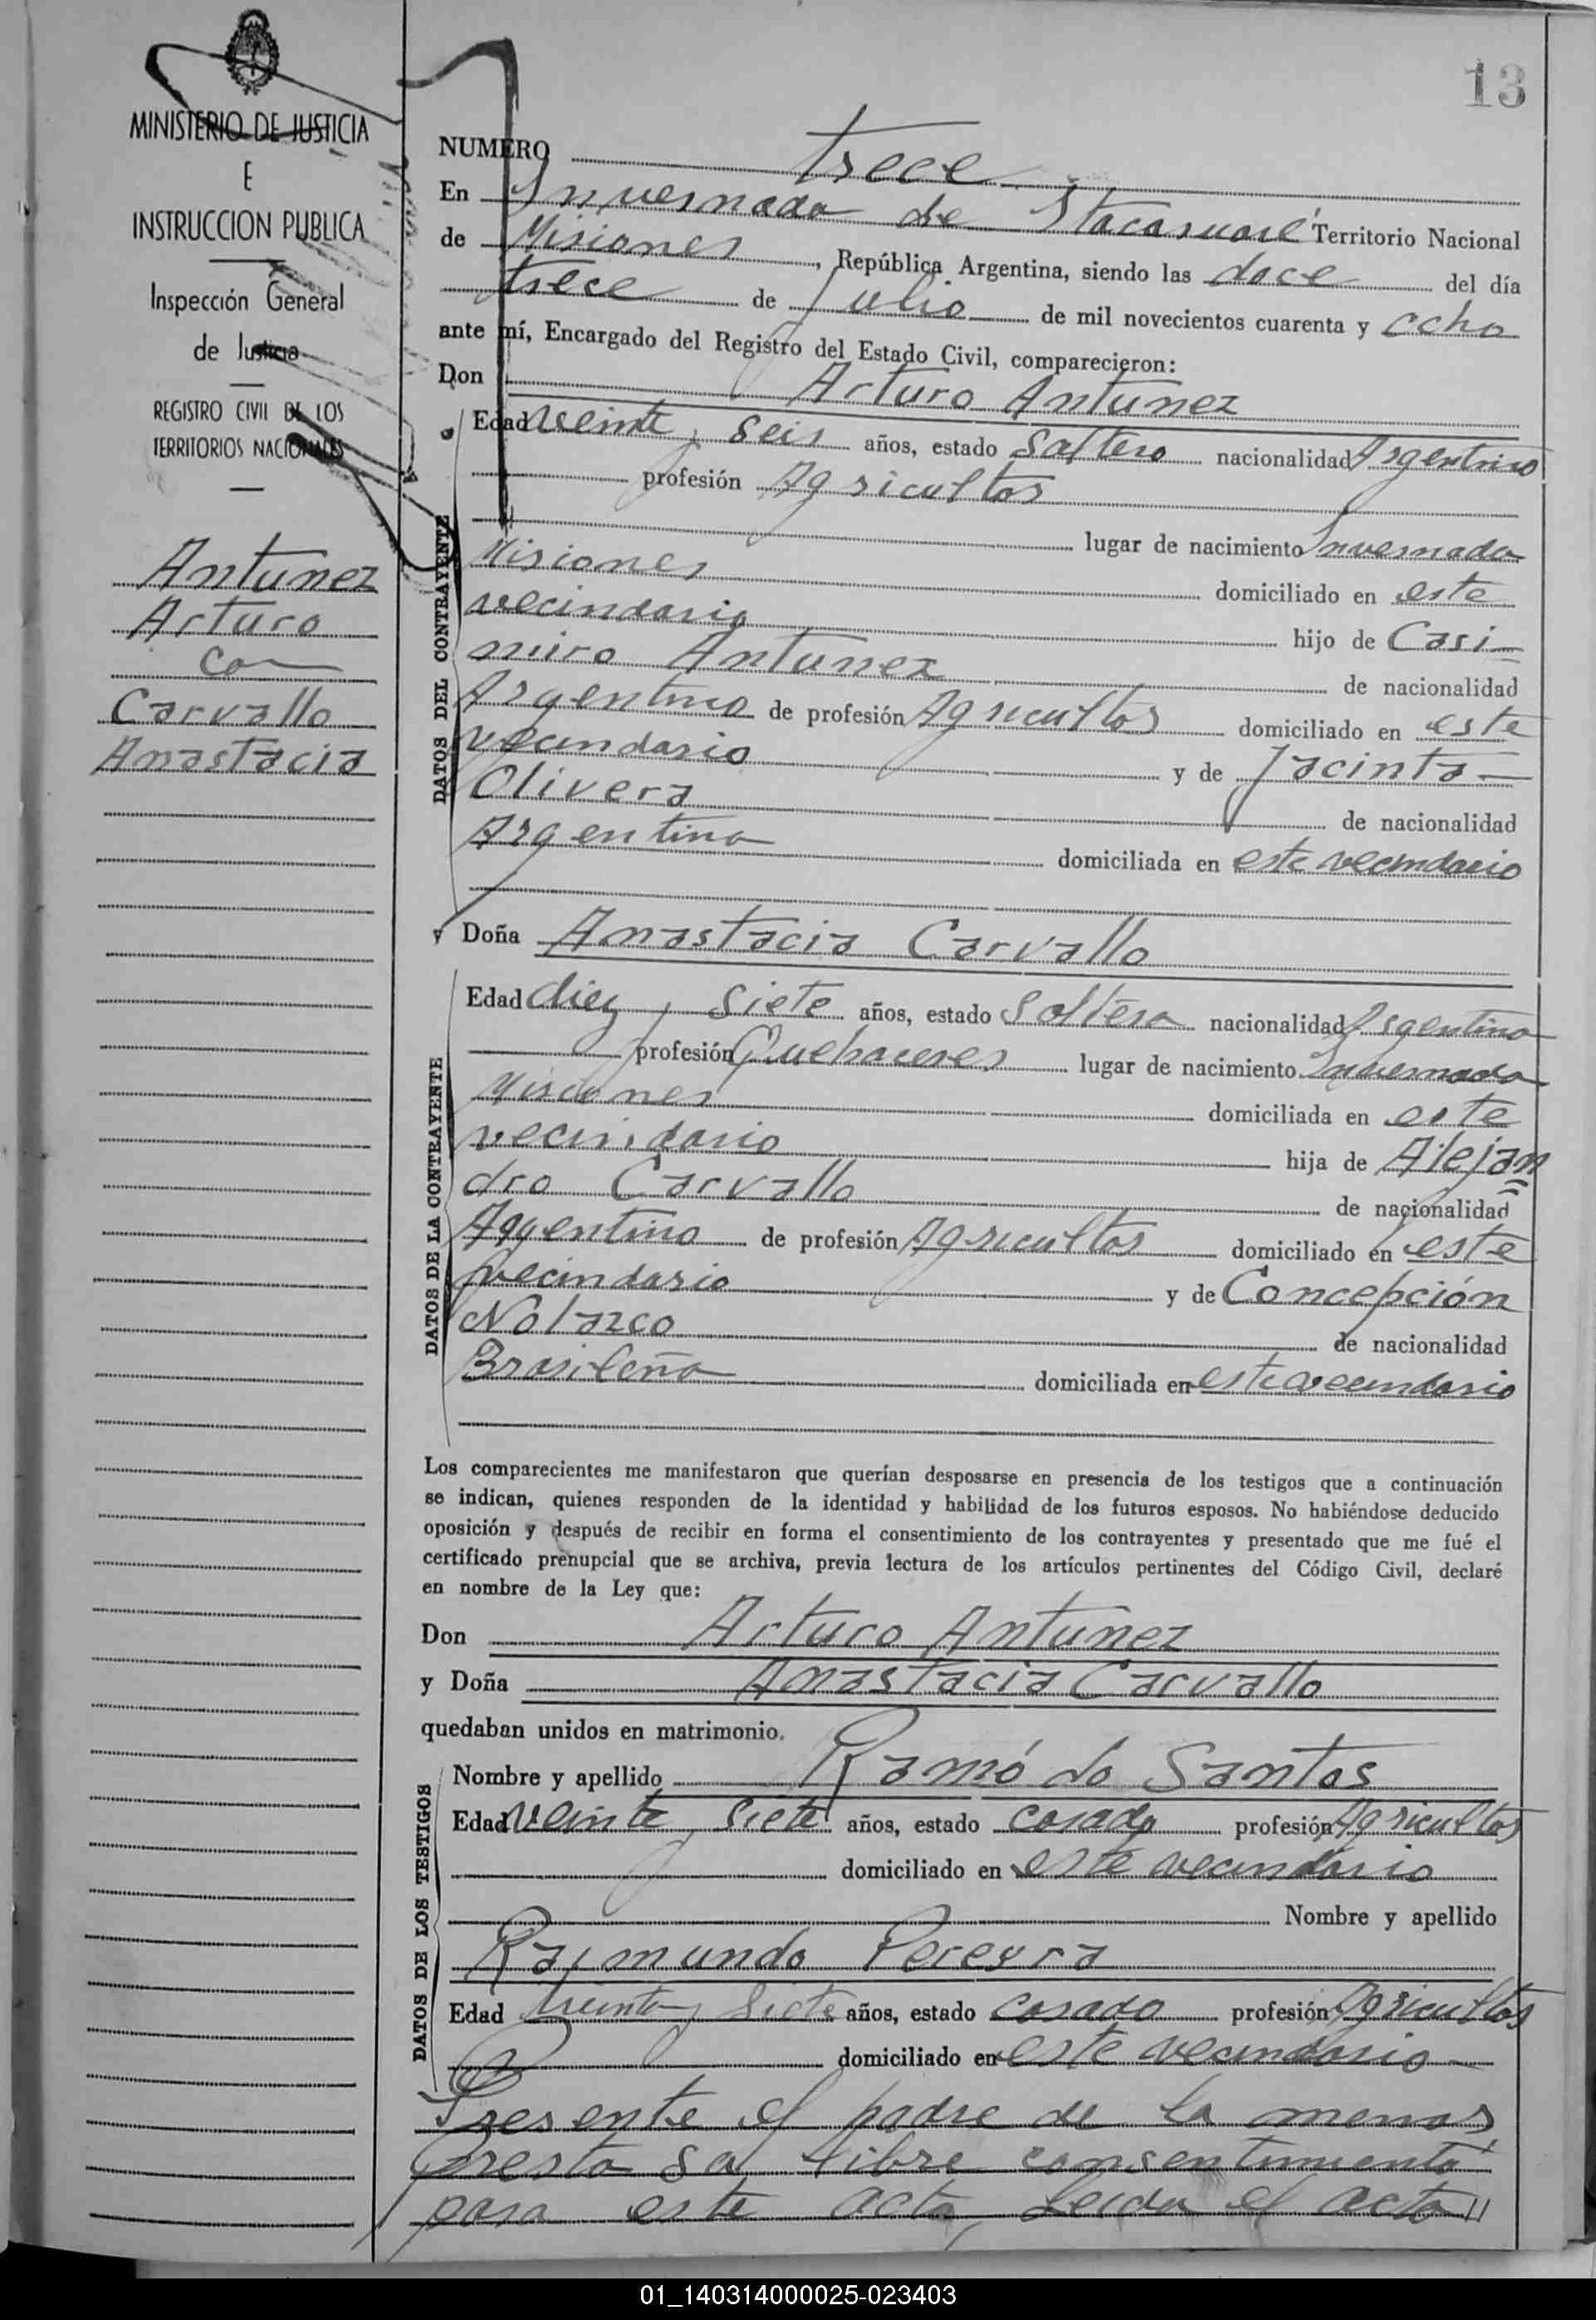 13
MINISTERIO DE JUSTICIA
E
INSTRUCCION PUBLICA
Inspección General
de Justicia
REGISTRO CIVIL DE LOS
TERRITORIOS NACIONALES
Antunez
Arturo
con
Carvallo
Anastacia
NUMERO trece
En Invernada de Itacaruaré Territorio Nacional
de Misiones, República Argentina, siendo las doce del día
trece de Julio de mil novecientos cuarenta y ocho
ante mí, Encargado del Registro del Estado Civil, comparecieron:
Don Arturo Antunez
DATOS DEL CONTRAYENTE
Edad veinte y seis años, estado Soltero nacionalidad Argentino
profesión Agricultor
lugar de nacimiento Invernada
Misiones domiciliado en este
vecindario hijo de Casi=
miro Antunez de nacionalidad
Argentino de profesión Agricultor domiciliado en este
vecindario y de Jacinta
Olivera de nacionalidad
Argentina domiciliada en este vecindario
y Doña Anastacia Carvallo
DATOS DE LA CONTRAYENTE
Edad diez y siete años, estado Soltera nacionalidad Argentina
profesión Quehaceres lugar de nacimiento Invernada
Misiones domiciliada en este
vecindario hija de Alejan=
dro Carvallo de nacionalidad
Argentino de profesión Agricultor domiciliado en este
vecindario y de Concepción
Nolazco de nacionalidad
Brasileña domiciliada en este vecindario
Los comparecientes me manifestaron que querían desposarse en presencia de los testigos que a continuación
se indican, quienes responden de la identidad y habilidad de los futuros esposos. No habiéndose deducido
oposición y después de recibir en forma el consentimiento de los contrayentes y presentado que me fué el
certificado prenupcial que se archiva, previa lectura de los artículos pertinentes del Código Civil, declaré
en nombre de la Ley que:
Don Arturo Antunez
y Doña Anastacia Carvallo
quedaban unidos en matrimonio.
DATOS DE LOS TESTIGOS
Nombre y apellido Ramó do Santos
Edad veinte y siete años, estado casado profesión Agricultor
domiciliado en este vecindario
Nombre y apellido
Raimundo Pereyra
Edad treinta y siete años, estado casado profesión Agricultor
domiciliado en este vecindario
Presente el padre de la menor,
presta su libre consentimiento
para este acto, Leida el acta //
01_140314000025-023403